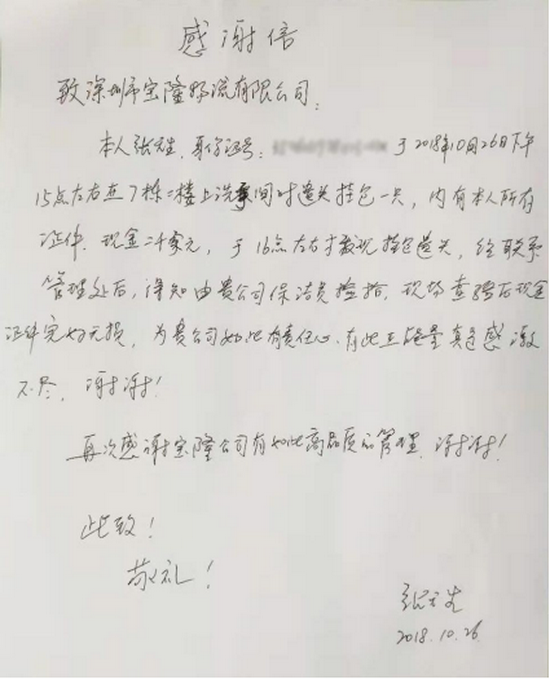 感谢信
致深圳市宝隆物流有限公司:
本人张先生,身份证号: 于2018年10月26日下午
15点左右在7栋二楼上洗手间时遗失挂包一只,内有本人所有
证件、现金二千余元,于16点左右才发现挂包遗失,经联系
管理处后,得知由贵公司保洁员捡拾,现场查验后现金
证件完好无损,为贵公司如此有责任心、有此正能量真是感激
不尽,谢谢!
再次感谢宝隆公司有如此高品质的管理,谢谢!
此致!
敬礼!
张先生
2018.10.26